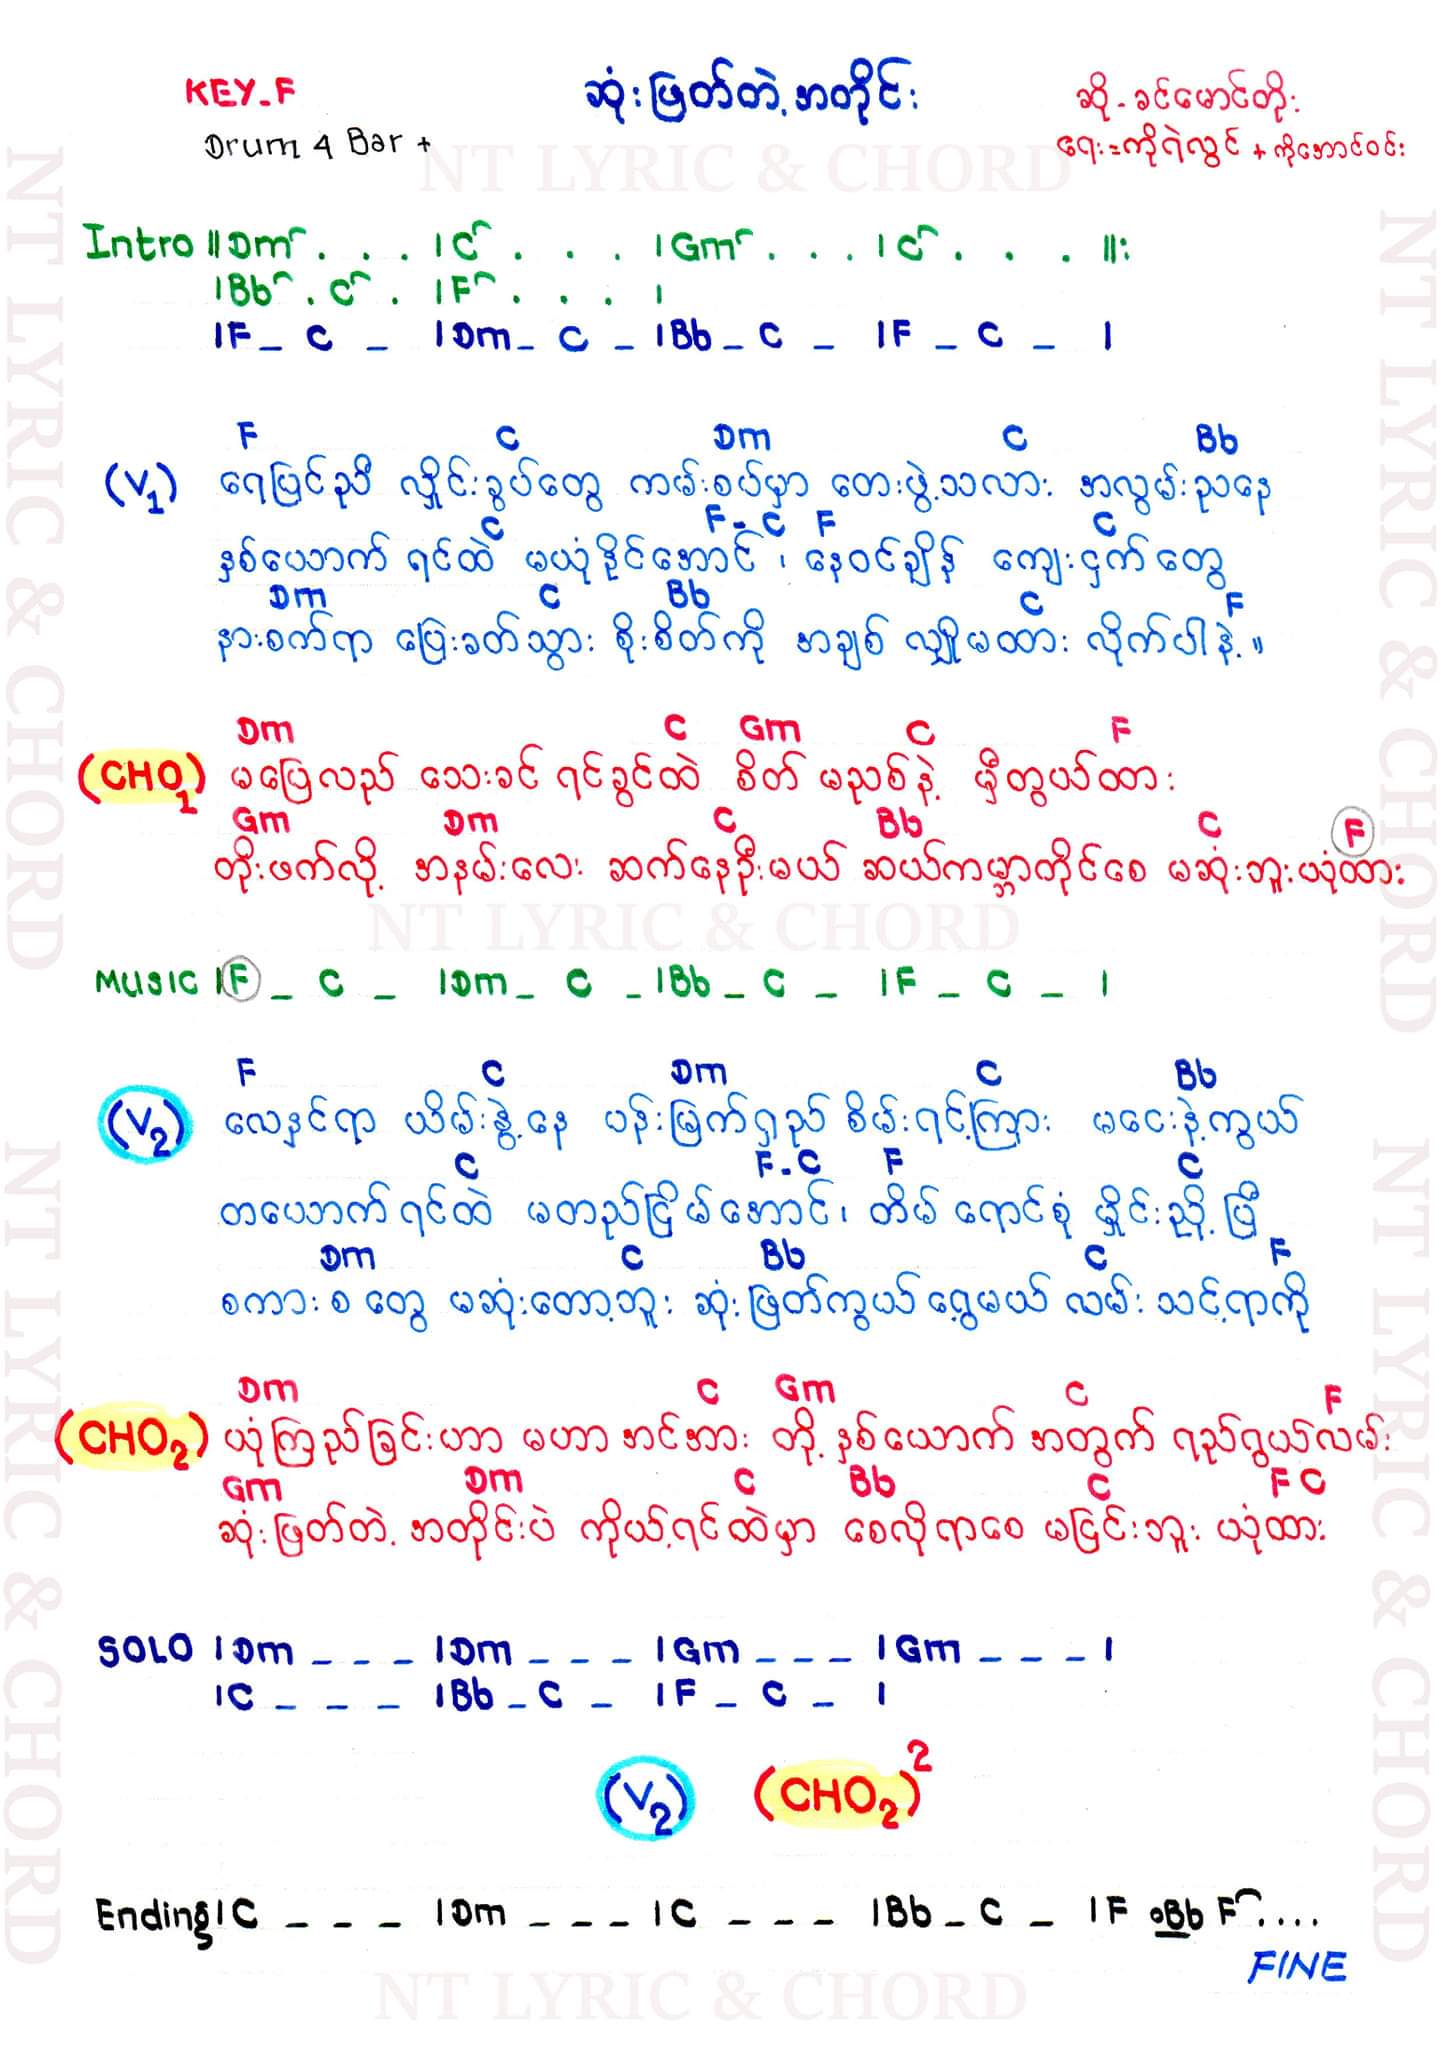 KEY-F
ဆုံးဖြတ်တဲ့အတိုင်း
ဆို - ခင်မောင်တိုး
Drum 4 Bar +
ရေး = ကိုရဲလွင် + ကိုအောင်ဝင်း
NT LYRIC & CHORD
Intro ||Dm . . . |C . . . |Gm . . . |C . . . ||:
|Bb . C . |F . . . |
|F _ C _ |Dm _ C _ |Bb _ C _ |F _ C _ |
F C Dm C Bb
(V1) ရေပြင်ညီ လှိုင်းခွပ်တွေ ကမ်းစပ်မှာ တေးဖွဲ့သလား အလွမ်းညနေ
C F - C F C
နှစ်ယောက် ရင်ထဲ မယုံနိုင်အောင်၊ နေဝင်ချိန် ကျေးငှက်တွေ
Dm C Bb C F
နားစက်ရာ ပြေးခတ်သွား စိုးစိတ်ကို အချစ် လျှို့မထား လိုက်ပါနဲ့။
Dm C Gm C F
(CHO1) မပြေလည် သေးခင် ရင်ခွင်ထဲ စိတ် မညစ်နဲ့ မှီတွယ်ထား
Gm Dm C Bb C F
တိုးဖက်လို့ အနမ်းလေး ဆက်နေဦးမယ် ဆယ်ကမ္ဘာတိုင်စေ မဆုံးဘူးယုံထား
NT LYRIC & CHORD
MUSIC |F _ C _ |Dm _ C _ |Bb _ C _ |F _ C _ |
F C Dm C Bb
(V2) လေနှင်ရာ ယိမ်းနွဲ့နေ ပန်းမြက်ရှည် စိမ်းရင့်ကြား မငေးနဲ့ကွယ်
C F - C F C
တယောက်ရင်ထဲ မတည်ငြိမ်အောင်၊ တိမ် ရောင်စုံ မှိုင်းညို့ပြီ
Dm C Bb C F
စကားစ တွေ မဆုံးတော့ဘူး ဆုံးဖြတ်ကွယ် ရွေ့မယ် လမ်း သင့်ရာကို
Dm C Gm C F
(CHO2) ယုံကြည်ခြင်းဟာ မဟာ အင်အား တို့ နှစ်ယောက် အတွက် ရည်ရွယ်လမ်း
Gm Dm C Bb C F C
ဆုံးဖြတ်တဲ့ အတိုင်းပဲ ကိုယ့်ရင်ထဲမှာ စေလိုရာစေ မငြင်းဘူး ယုံထား
SOLO |Dm _ _ _ |Dm _ _ _ |Gm _ _ _ |Gm _ _ _ |
|C _ _ _ |Bb _ C _ |F _ C _ |
(V2) (CHO2)2
Ending |C _ _ _ |Dm _ _ _ |C _ _ _ |Bb _ C _ |F Bb F ....
FINE
NT LYRIC & CHORD
NT LYRIC & CHORD
NT LYRIC & CHORD
NT LYRIC & CHORD
NT LYRIC & CHORD